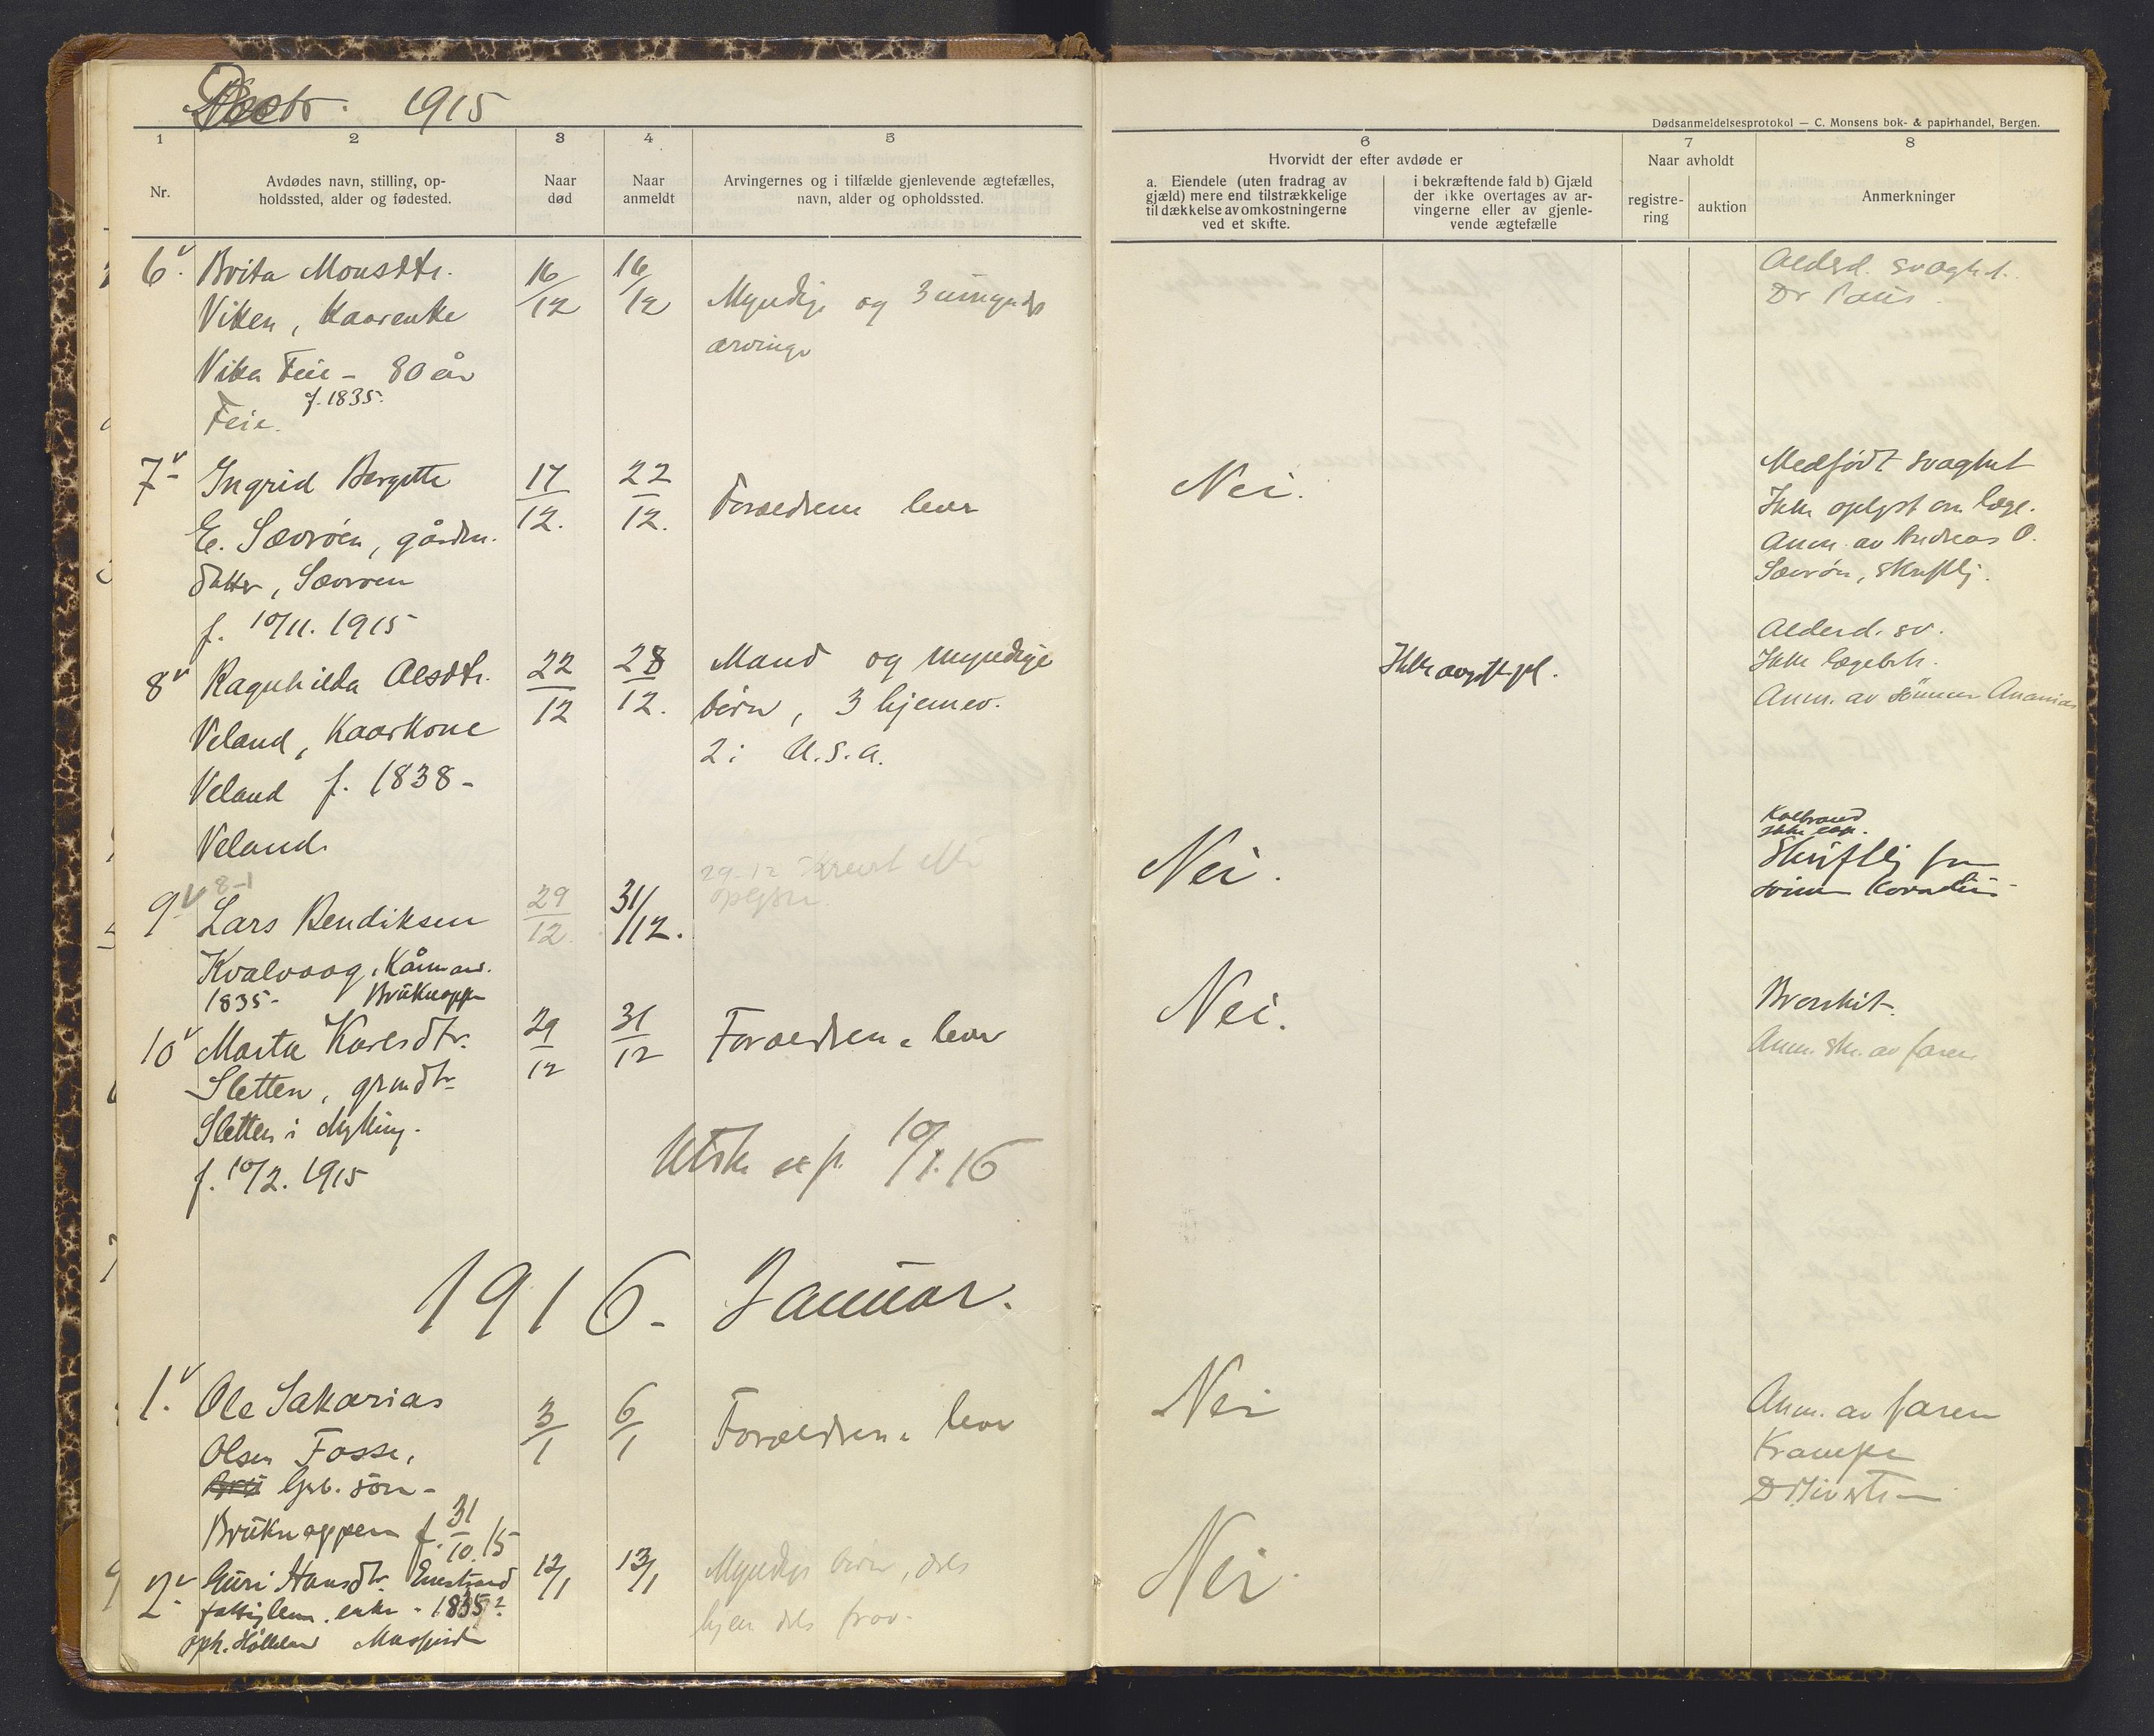 Decbr. 1915
Dødsanmeldelsesprotokol — C. Monsens bok- & papirhandel, Bergen.
1 2 3 4 5 6 7 8
Nr.
Avdødes navn, stilling, op-
holdssted, alder og fødested.
Naar
død
Naar
anmeldt
Arvingernes og i tilfælde gjenlevende ægtefælles,
navn, alder og opholdssted.
Hvorvidt der efter avdøde er
a. Eiendele (uten fradrag av
gjæld) mere end tilstrækkelige
til dækkelse av omkostningerne
ved et skifte.
i bekræftende fald b) Gjæld
der ikke overtages av ar-
vingerne eller av gjenle-
vende ægtefælle
Naar avholdt
registre-
ring
auktion
Anmerkninger
6. Brita Monsdtr.
Viken, Kaarenke
Vika Feie - 80 år
f. 1835.
Feie.
16/12
16/12
Myndige og 3 umynd.
arvinge
Alderd. svaghet.
Dr Paus
7 Ingrid Bergitte
E. Sævrøen, gårdm.
datter, Sævrøen
f. 10/11. 1915
17/12.
22/12.
Forældrene lever
Nei.
Medfødt svaghet
Ikke oplyst om læge.
Anm. av Andreas O.
Sævrøen, skriftlig.
8 Ragnhilda Olsdtr.
Veland, Kaarkone
Veland f. 1838 -
Veland.
22/12
28/12.
Mand og myndige
børn, 3 hjemev.
2 i U.S.A.
Alderd. sv.
Ikke lægebeh.
Anm. av sønnen Ananias
8-1
9 Lars Bendiksen
Kvalvaag, Kårman.
1835 - Bruknappen
29/12.
31/12.
29-12 Skrevet efter
oplysn.
Nei.
Kolbrand
Skriftlig fra
sønnen Kornelius
10 Marta Karlsdtr.
Sletten, grmdtr
Sletten i Myking.
f. 10/2. 1915
29/12
31/12
Forældrene lever
Nei.
Bronkit.
Anm. skr. av faren
Utskr exp. 10/1.16
1916 - Januar.
1. Ole Sakarias
Olsen Fosse,
Gbr. søn -
Bruknappen f. 31/10.15
3/1
6/1
Forældrene lever
Nei
Anm. av faren
Krampe
2. Guri Hansdtr.
fattiglem. enke - 1835?
oph.
12/1
13/1
Myndige børn, dels
hjem dels frav.
Nei.